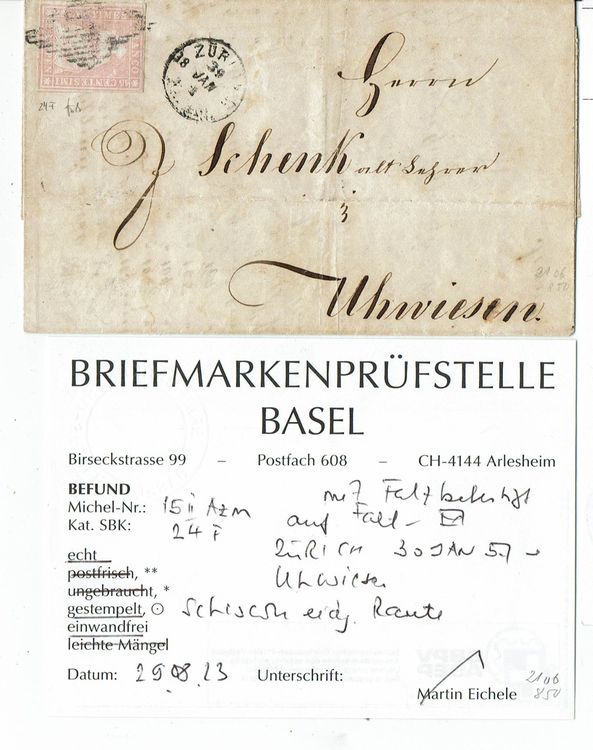 FRANCO
15 CENTESIMI
ZÜRICH
JAN
24F
Herrn
Schenk alt Lehrer
Uhwiesen.
2106
850
BRIEFMARKENPRÜFSTELLE
BASEL
Birseckstrasse 99 – Postfach 608 – CH-4144 Arlesheim
BEFUND
Michel-Nr.: 15 II Azm
Kat. SBK: 24 F
mit Falz befestigt
auf Falt-
ZÜRICH 30 JAN 57 -
Uhwiesen
echt
postfrisch, **
ungebraucht, *
gestempelt, ⊙ schwarze eidg. Raute
einwandfrei
leichte Mängel
Datum: 29 08 23 Unterschrift:
Martin Eichele
2106
850